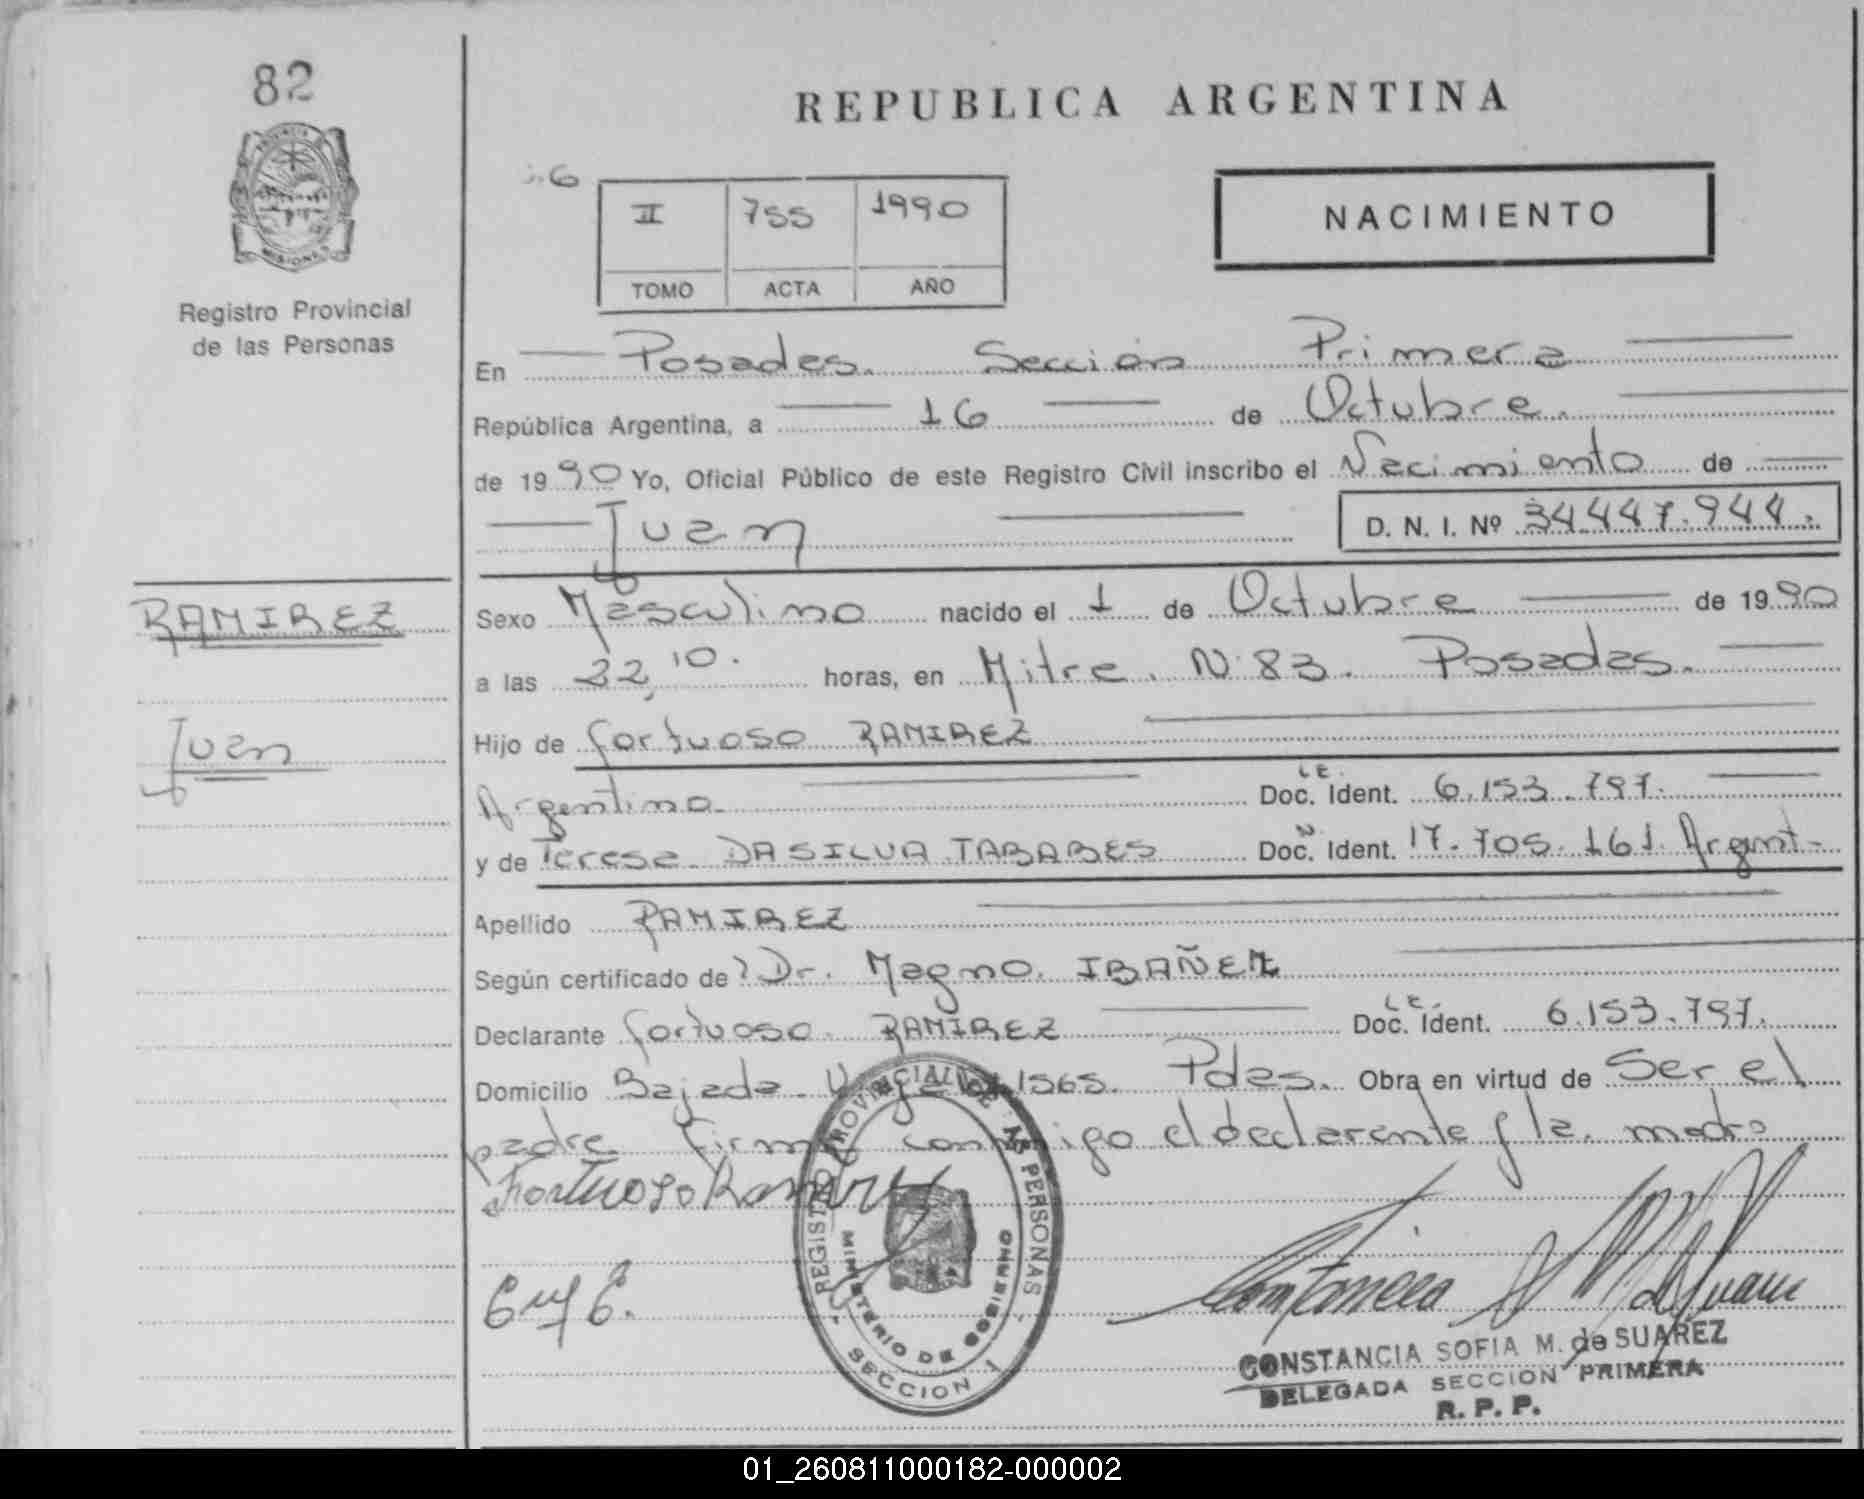 82
REPUBLICA ARGENTINA
PROVINCIA
MISIONES
Registro Provincial
de las Personas
II 755 1990
TOMO ACTA AÑO
NACIMIENTO
En Posadas. Sección Primera
República Argentina, a 16 de Octubre.
de 1990 Yo, Oficial Público de este Registro Civil inscribo el Nacimiento de
Juan
D. N. I. Nº 34.447.944.
RAMIREZ
Juan
Sexo Masculino nacido el 1 de Octubre de 1990
a las 22,10. horas, en Mitre. N: 83. Posadas.
Hijo de Fortuoso RAMIREZ
Argentino. L E. Doc. Ident. 6.153.797.
y de Teresa DASILVA TABARES Doc. Ident. 17.705.161. Argent-
Apellido RAMIREZ
Según certificado de Dr. Magno. IBAÑEZ
Declarante Fortuoso. RAMIREZ L E. Doc. Ident. 6.153.797.
Domicilio Bajada 1565. Pdas. Obra en virtud de Ser el
padre. Firma conmigo el declarante y la. madre
Fortuoso Ramirez
REGISTRO PROVINCIAL DE LAS PERSONAS
MINISTERIO DE GOBIERNO
SECCION 1
CONSTANCIA SOFIA M. de SUAREZ
DELEGADA SECCION PRIMERA
R. P. P.
01_260811000182-000002